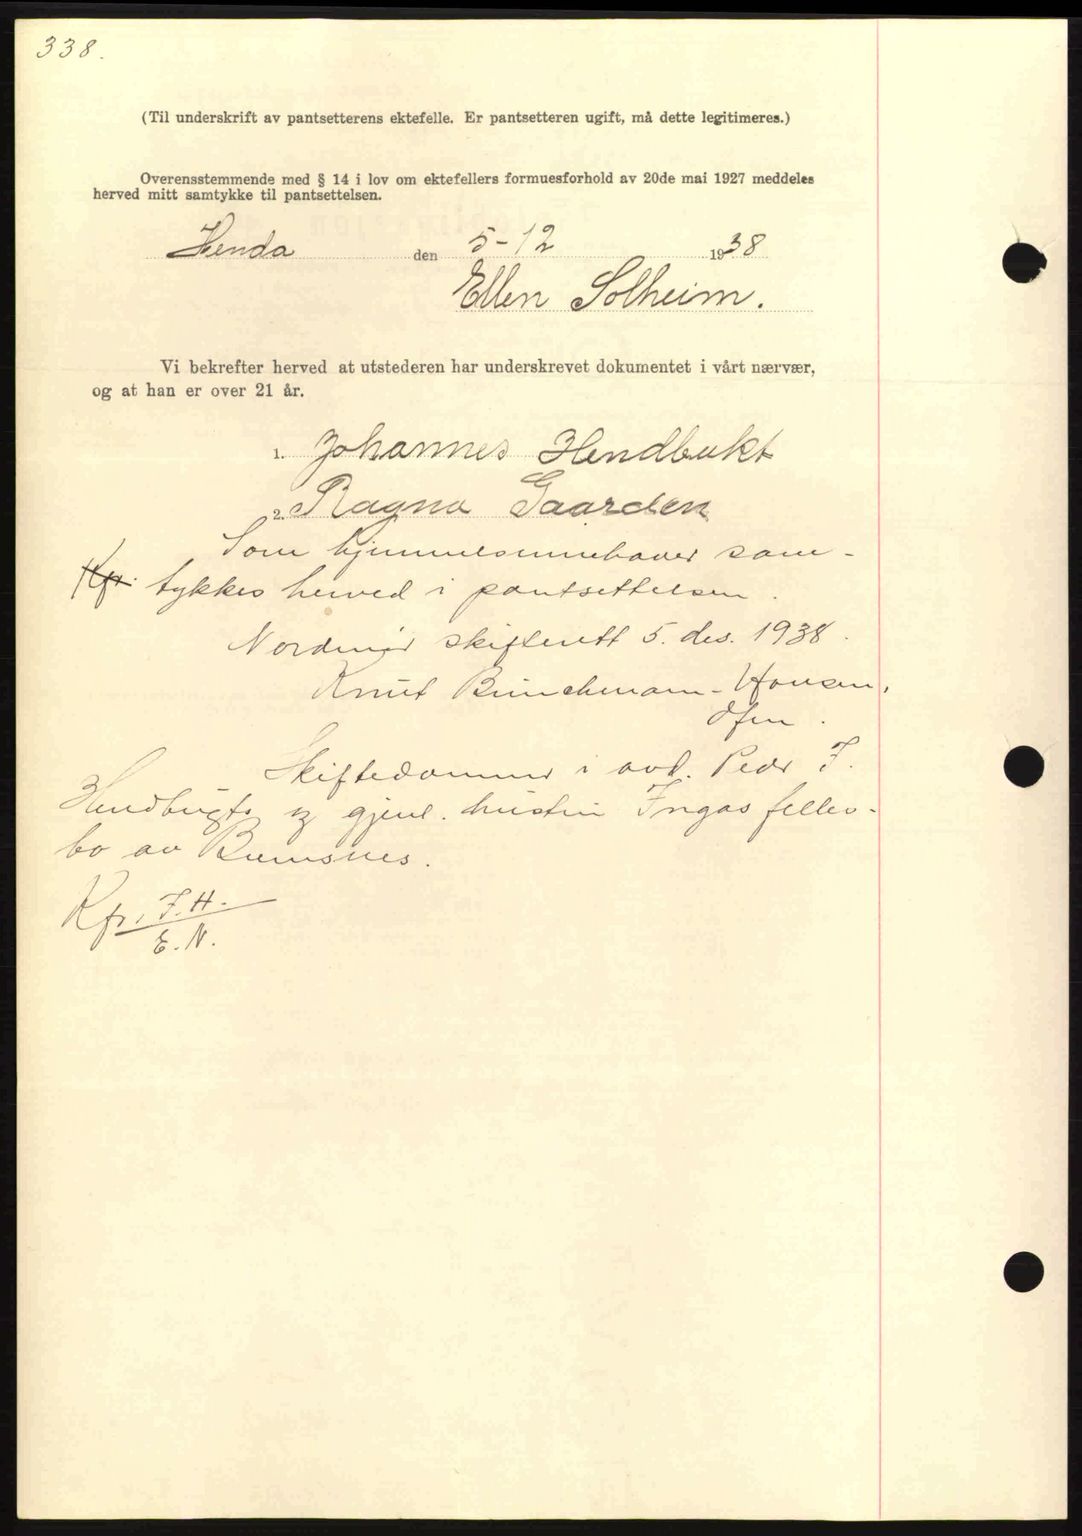 338.
(Til underskrift av pantsetterens ektefelle. Er pantsetteren ugift, må dette legitimeres.)
Overensstemmende med § 14 i lov om ektefellers formuesforhold av 20de mai 1927 meddeles
herved mitt samtykke til pantsettelsen.
Henda den 5-12 1938
Ellen Solheim.
Vi bekrefter herved at utstederen har underskrevet dokumentet i vårt nærvær,
og at han er over 21 år.
1. Johannes Hendbukt
2. Ragna Gaarden
Som hjemmelsinnehaver sam-
Kfr. tykkes herved i pantsettelsen.
Nordmør skifterett 5. des. 1938.
Knut Bünchmann-Hansen,
dfm.
Skiftedommer i avd. Peder I.
Hendbugts og gjenl. hustru Ingas felles-
bo av Bremsnes.
Kfr. I. H.
E. N.